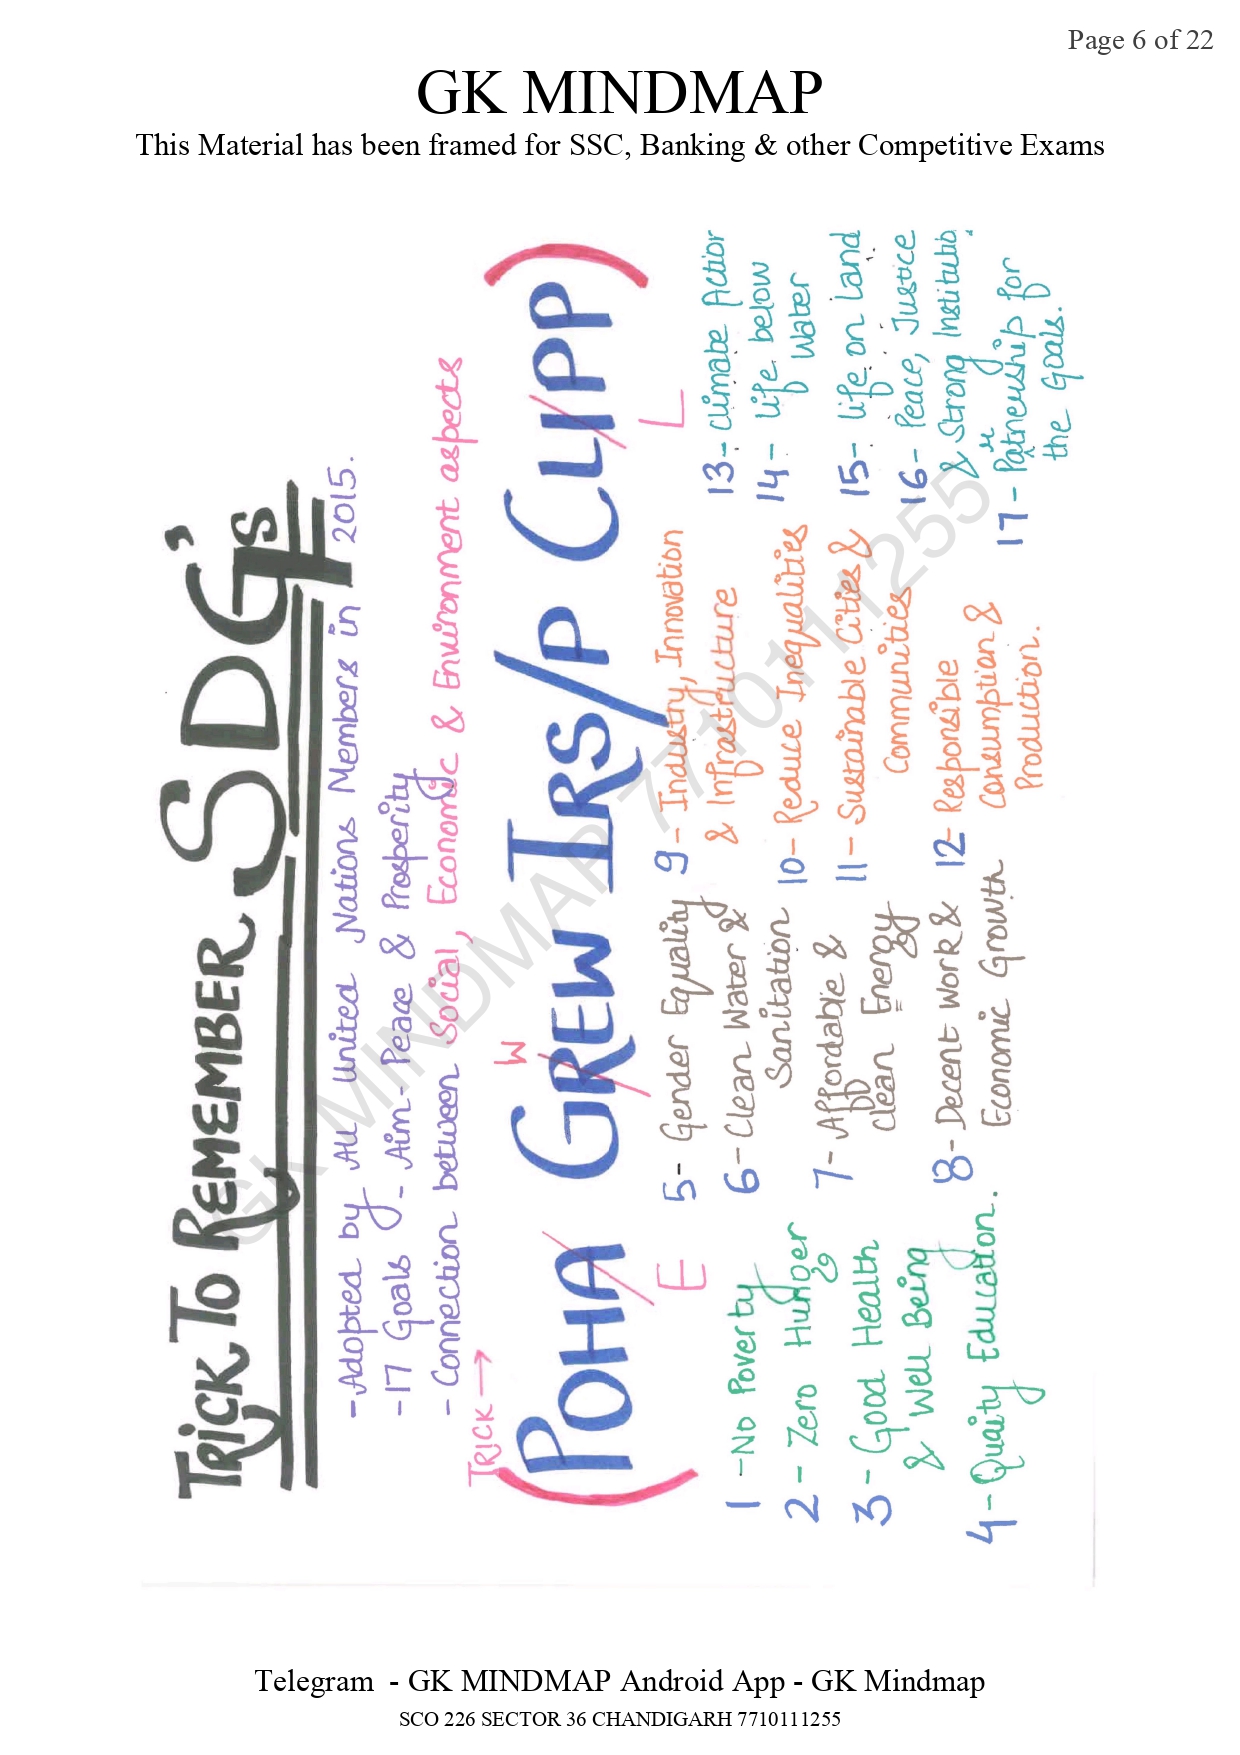 Page 6 of 22
GK MINDMAP
This Material has been framed for SSC, Banking & other Competitive Exams
TRICK TO REMEMBER SDG's
-Adopted by All United Nations Members in 2015.
-17 Goals - Aim-Peace & Prosperity
-Connection between Social, Economic & Environment aspects
TRICK →
(POHA GREW IRS/P CLIPP)
E
W
L
1 -No Poverty
2 - Zero Hunger
3 - Good Health
& Well Being
4 - Quaity Education.
5- Gender Equality
6 - Clean Water &
Sanitation
7 - Affordable &
Clean Energy
8 - Decent Work &
Economic Growth
9 - Industry, Innovation
& Infrastructure
10 - Reduce Inequalities
11 - Sustainable Cities &
Communities
12- Responsible
Consumption &
Production.
13 - Climate Action
14 - life below
Water
15 - life on land
16 - Peace, Justice
& Strong Institutio
17 - Partneuship for
the Goals.
GK MINDMAP 7710111255
Telegram - GK MINDMAP Android App - GK Mindmap
SCO 226 SECTOR 36 CHANDIGARH 7710111255